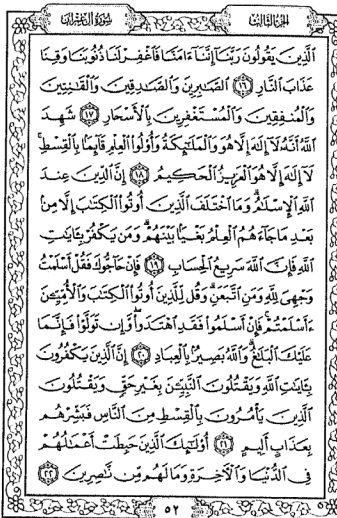 سُورَةُ آلِ عِمْرَانَ الجُزْءُ الثَّالِثُ
الَّذِينَ يَقُولُونَ رَبَّنَا إِنَّنَا ءَامَنَّا فَاغْفِرْ لَنَا ذُنُوبَنَا وَقِنَا
عَذَابَ النَّارِ ١٦ الصَّابِرِينَ وَالصَّادِقِينَ وَالْقَانِتِينَ
وَالْمُنفِقِينَ وَالْمُسْتَغْفِرِينَ بِالْأَسْحَارِ ١٧ شَهِدَ
اللَّهُ أَنَّهُ لَا إِلَٰهَ إِلَّا هُوَ وَالْمَلَائِكَةُ وَأُولُوا الْعِلْمِ قَائِمًا بِالْقِسْطِ
لَا إِلَٰهَ إِلَّا هُوَ الْعَزِيزُ الْحَكِيمُ ١٨ إِنَّ الدِّينَ عِندَ
اللَّهِ الْإِسْلَامُ وَمَا اخْتَلَفَ الَّذِينَ أُوتُوا الْكِتَابَ إِلَّا مِن
بَعْدِ مَا جَاءَهُمُ الْعِلْمُ بَغْيًا بَيْنَهُمْ وَمَن يَكْفُرْ بِـَٔايَاتِ
اللَّهِ فَإِنَّ اللَّهَ سَرِيعُ الْحِسَابِ ١٩ فَإِنْ حَاجُّوكَ فَقُلْ أَسْلَمْتُ
وَجْهِيَ لِلَّهِ وَمَنِ اتَّبَعَنِ وَقُل لِّلَّذِينَ أُوتُوا الْكِتَابَ وَالْأُمِّيِّينَ
ءَأَسْلَمْتُمْ فَإِنْ أَسْلَمُوا فَقَدِ اهْتَدَوا وَّإِن تَوَلَّوْا فَإِنَّمَا
عَلَيْكَ الْبَلَاغُ وَاللَّهُ بَصِيرٌ بِالْعِبَادِ ٢٠ إِنَّ الَّذِينَ يَكْفُرُونَ
بِـَٔايَاتِ اللَّهِ وَيَقْتُلُونَ النَّبِيِّينَ بِغَيْرِ حَقٍّ وَيَقْتُلُونَ
الَّذِينَ يَأْمُرُونَ بِالْقِسْطِ مِنَ النَّاسِ فَبَشِّرْهُم
بِعَذَابٍ أَلِيمٍ ٢١ أُولَٰئِكَ الَّذِينَ حَبِطَتْ أَعْمَالُهُمْ
فِي الدُّنْيَا وَالْآخِرَةِ وَمَا لَهُم مِّن نَّاصِرِينَ ٢٢
٥٢